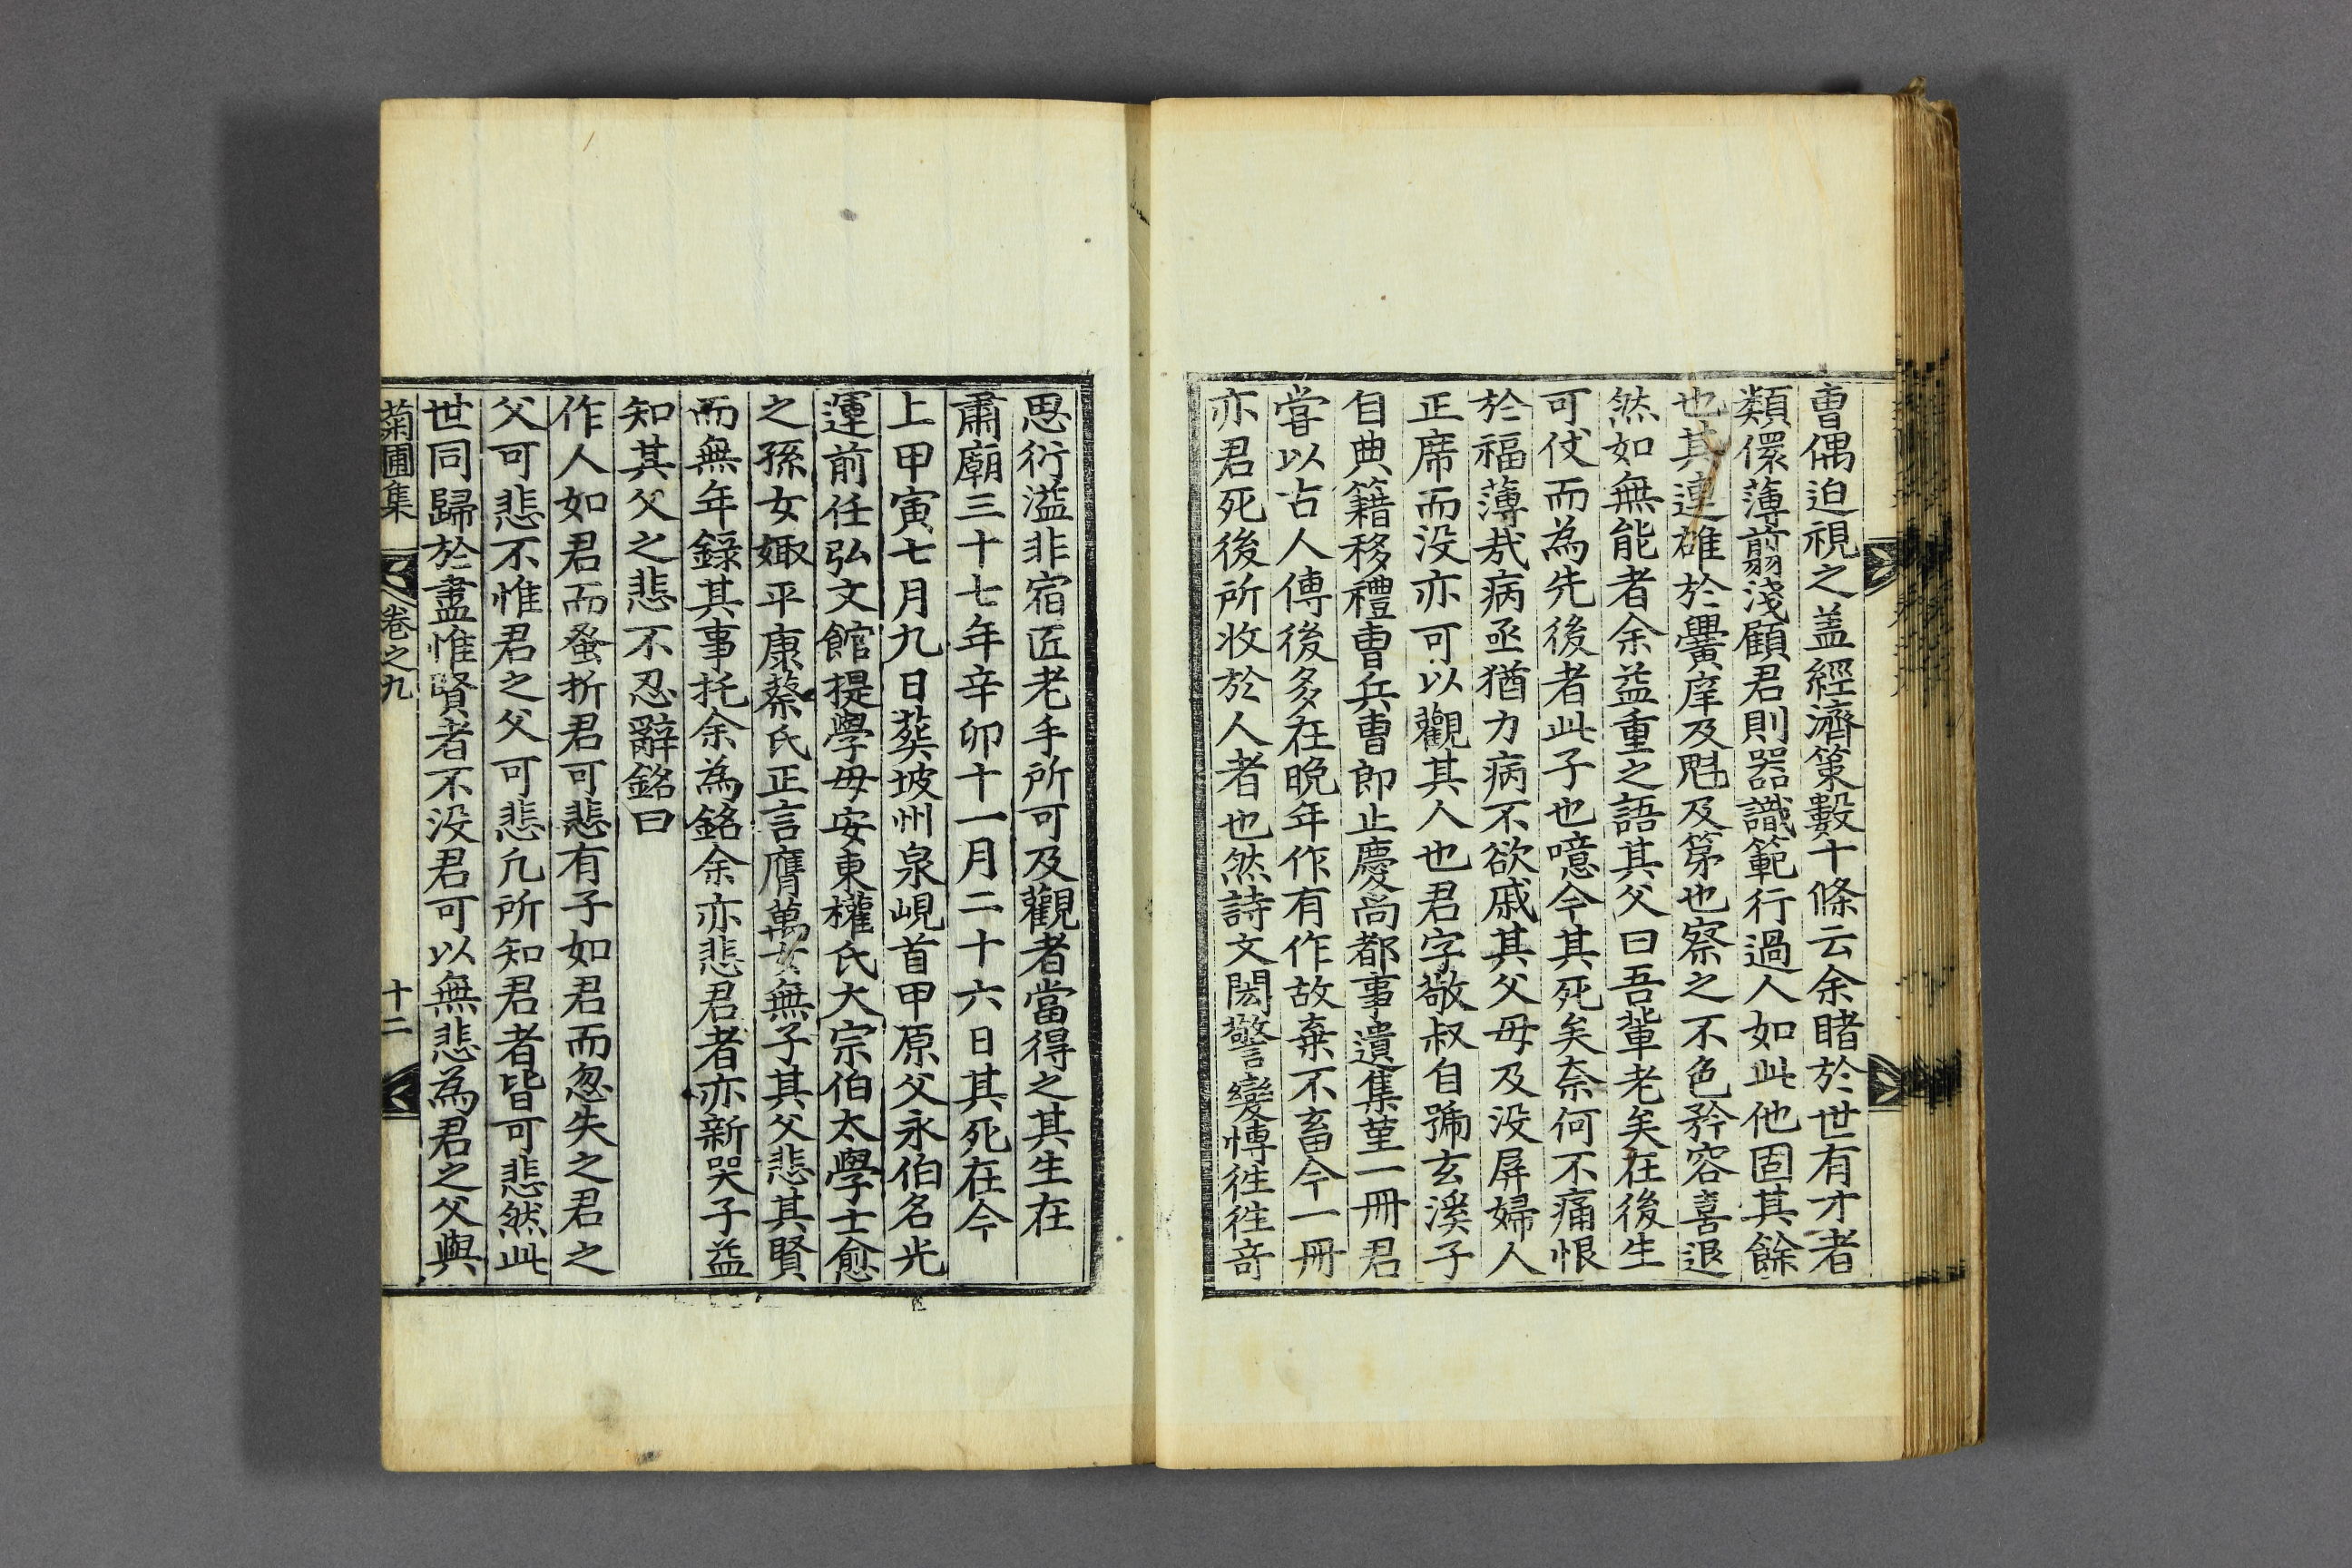 曺偶迫視之盖經濟策數十條云余睹於世有才者
類儇薄翦淺顧君則器識範行過人如此他固其餘
也其連雄於黌庠及魁及第也察之不色矜容喜退
然如無能者余益重之語其父曰吾輩老矣在後生
可仗而為先後者此子也噫今其死矣奈何不痛恨
於福薄㢤病亟猶力病不欲戚其父母及没屏婦人
正席而没亦可以觀其人也君字敬叔自號玄溪子
自典籍移禮曺兵曺郎止慶尚都事遺集堇一冊君
嘗以古人傳後多在晩年作有作故棄不畜今一冊
亦君死後所收於人者也然詩文閎警變慱徃徃奇
思衍溢非宿匠老手所可及觀者當得之其生在
肅廟三十七年辛卯十一月二十六日其死在今
上甲寅七月九日葬坡州泉峴首甲原父永伯名光
運前任弘文館提學母安東權氏大宗伯太學士愈
之孫女娵平康蔡氏正言膺萬女無子其父悲其賢
而無年錄其事托余為銘余亦悲君者亦新哭子益
知其父之悲不忍辭銘曰
作人如君而蚤折君可悲有子如君而忽失之君之
父可悲不惟君之父可悲凡所知君者皆可悲然此
世同歸於盡惟賢者不没君可以無悲為君之父與
菊圃集 卷之九 十二